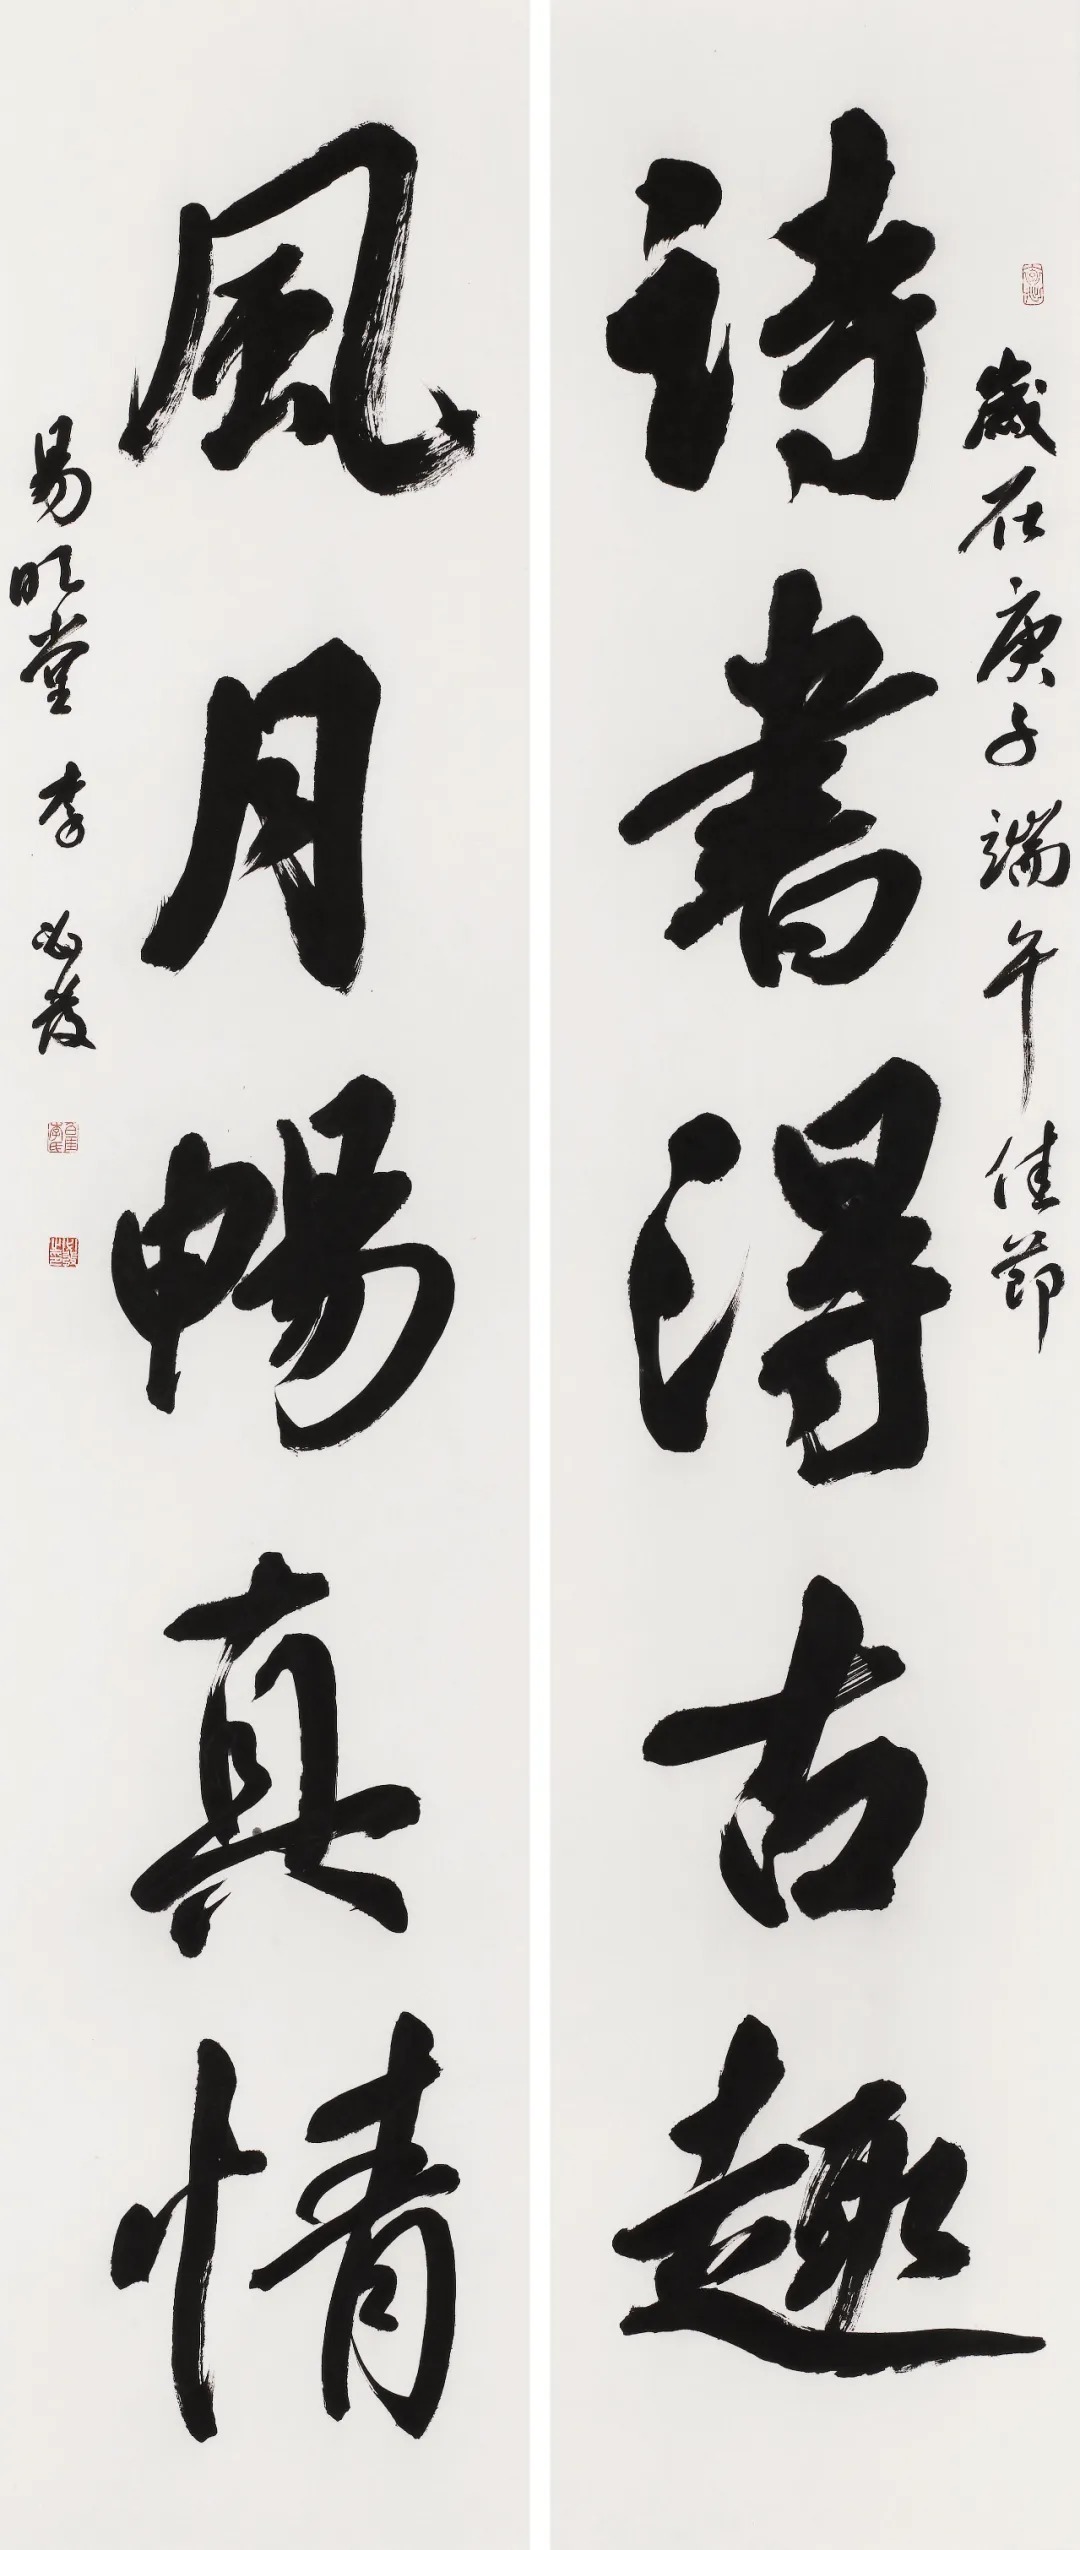 詩書得古趣
歲在庚子端午佳節
風月暢真情
易明堂 李必發